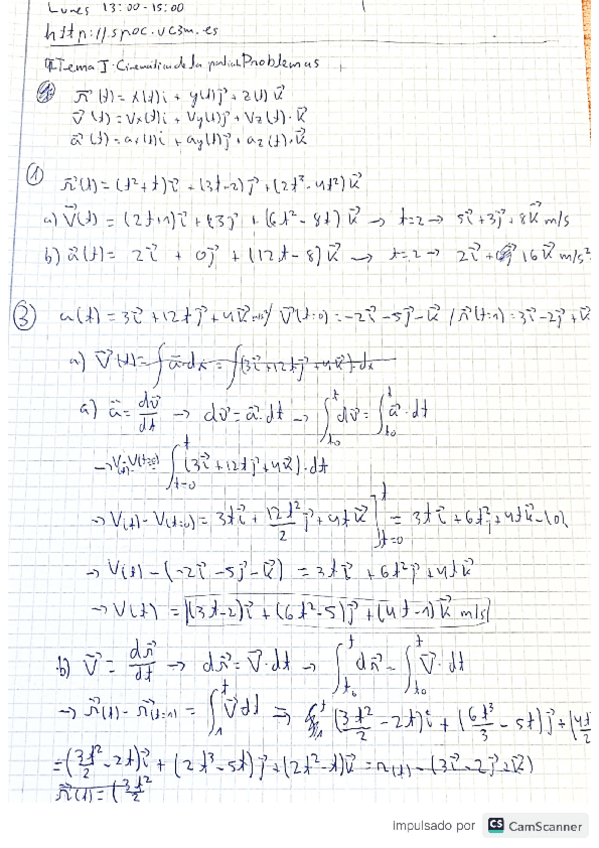 Lunes 13:00-15:00
http://spoc.uc3m.es
Tema I: Cinemática de la partícula Problemas
r⃗(t) = x(t)i + y(t)j + z(t)k⃗
v⃗(t) = Vx(t)i + Vy(t)j + Vz(t)·k⃗
a⃗(t) = ax(t)i + ay(t)j + az(t)·k⃗
① r⃗(t) = (t²+t)i⃗ + (3t-2)j⃗ + (2t³-4t²)k⃗
a) V⃗(t) = (2t+1)i⃗ + 3j⃗ + (6t²-8t)k⃗ → t=2 → 5i⃗+3j⃗+8k⃗ m/s
b) a⃗(t) = 2i⃗ + 0j⃗ + (12t-8)k⃗ → t=2 → 2i⃗+ 16k⃗ m/s²
③ a(t) = 3i⃗+12tj⃗+4k⃗ m/s² / V⃗(t=0) = -2i⃗-5j⃗-k⃗ / r⃗(t=1) = 3i⃗-2j⃗+k⃗
a) V⃗(t) = ∫a⃗·dt = ∫(3i⃗+12tj⃗+4k⃗)·dt
a) a⃗ = dv⃗/dt → dv⃗ = a⃗·dt → ∫ₜ₀ᵗ dv⃗ = ∫ₜ₀ᵗ a⃗·dt
→ V(t)-V(t=0) = ∫ₜ₌₀ᵗ (3i⃗+12tj⃗+4k⃗)·dt
→ V(t) - V(t=0) = 3ti⃗ + 12t²/2 j⃗ + 4tk⃗ ]ₜ₌₀ᵗ = 3ti⃗+6t²j⃗+4tk⃗-(0)
→ V(t) - (-2i⃗-5j⃗-k⃗) = 3ti⃗ + 6t²j⃗ + 4tk⃗
→ V(t) = (3t-2)i⃗ + (6t²-5)j⃗ + (4t-1)k⃗ m/s
b) V⃗ = dr⃗/dt → dr⃗ = V⃗·dt → ∫ₜ₀ᵗ dr⃗ = ∫ₜ₀ᵗ V⃗·dt
→ r⃗(t) - r⃗(t=1) = ∫₁ᵗ V⃗dt ⇒ (3t²/2 - 2t)i⃗ + (6t³/3 - 5t)j⃗ + (4t²/2
= (3t²/2 - 2t)i⃗ + (2t³-5t)j⃗ + (2t²-t)k⃗ = r(t) - (3i⃗-2j⃗+k⃗)
r⃗(t) = (3t²/2
Impulsado por CS CamScanner